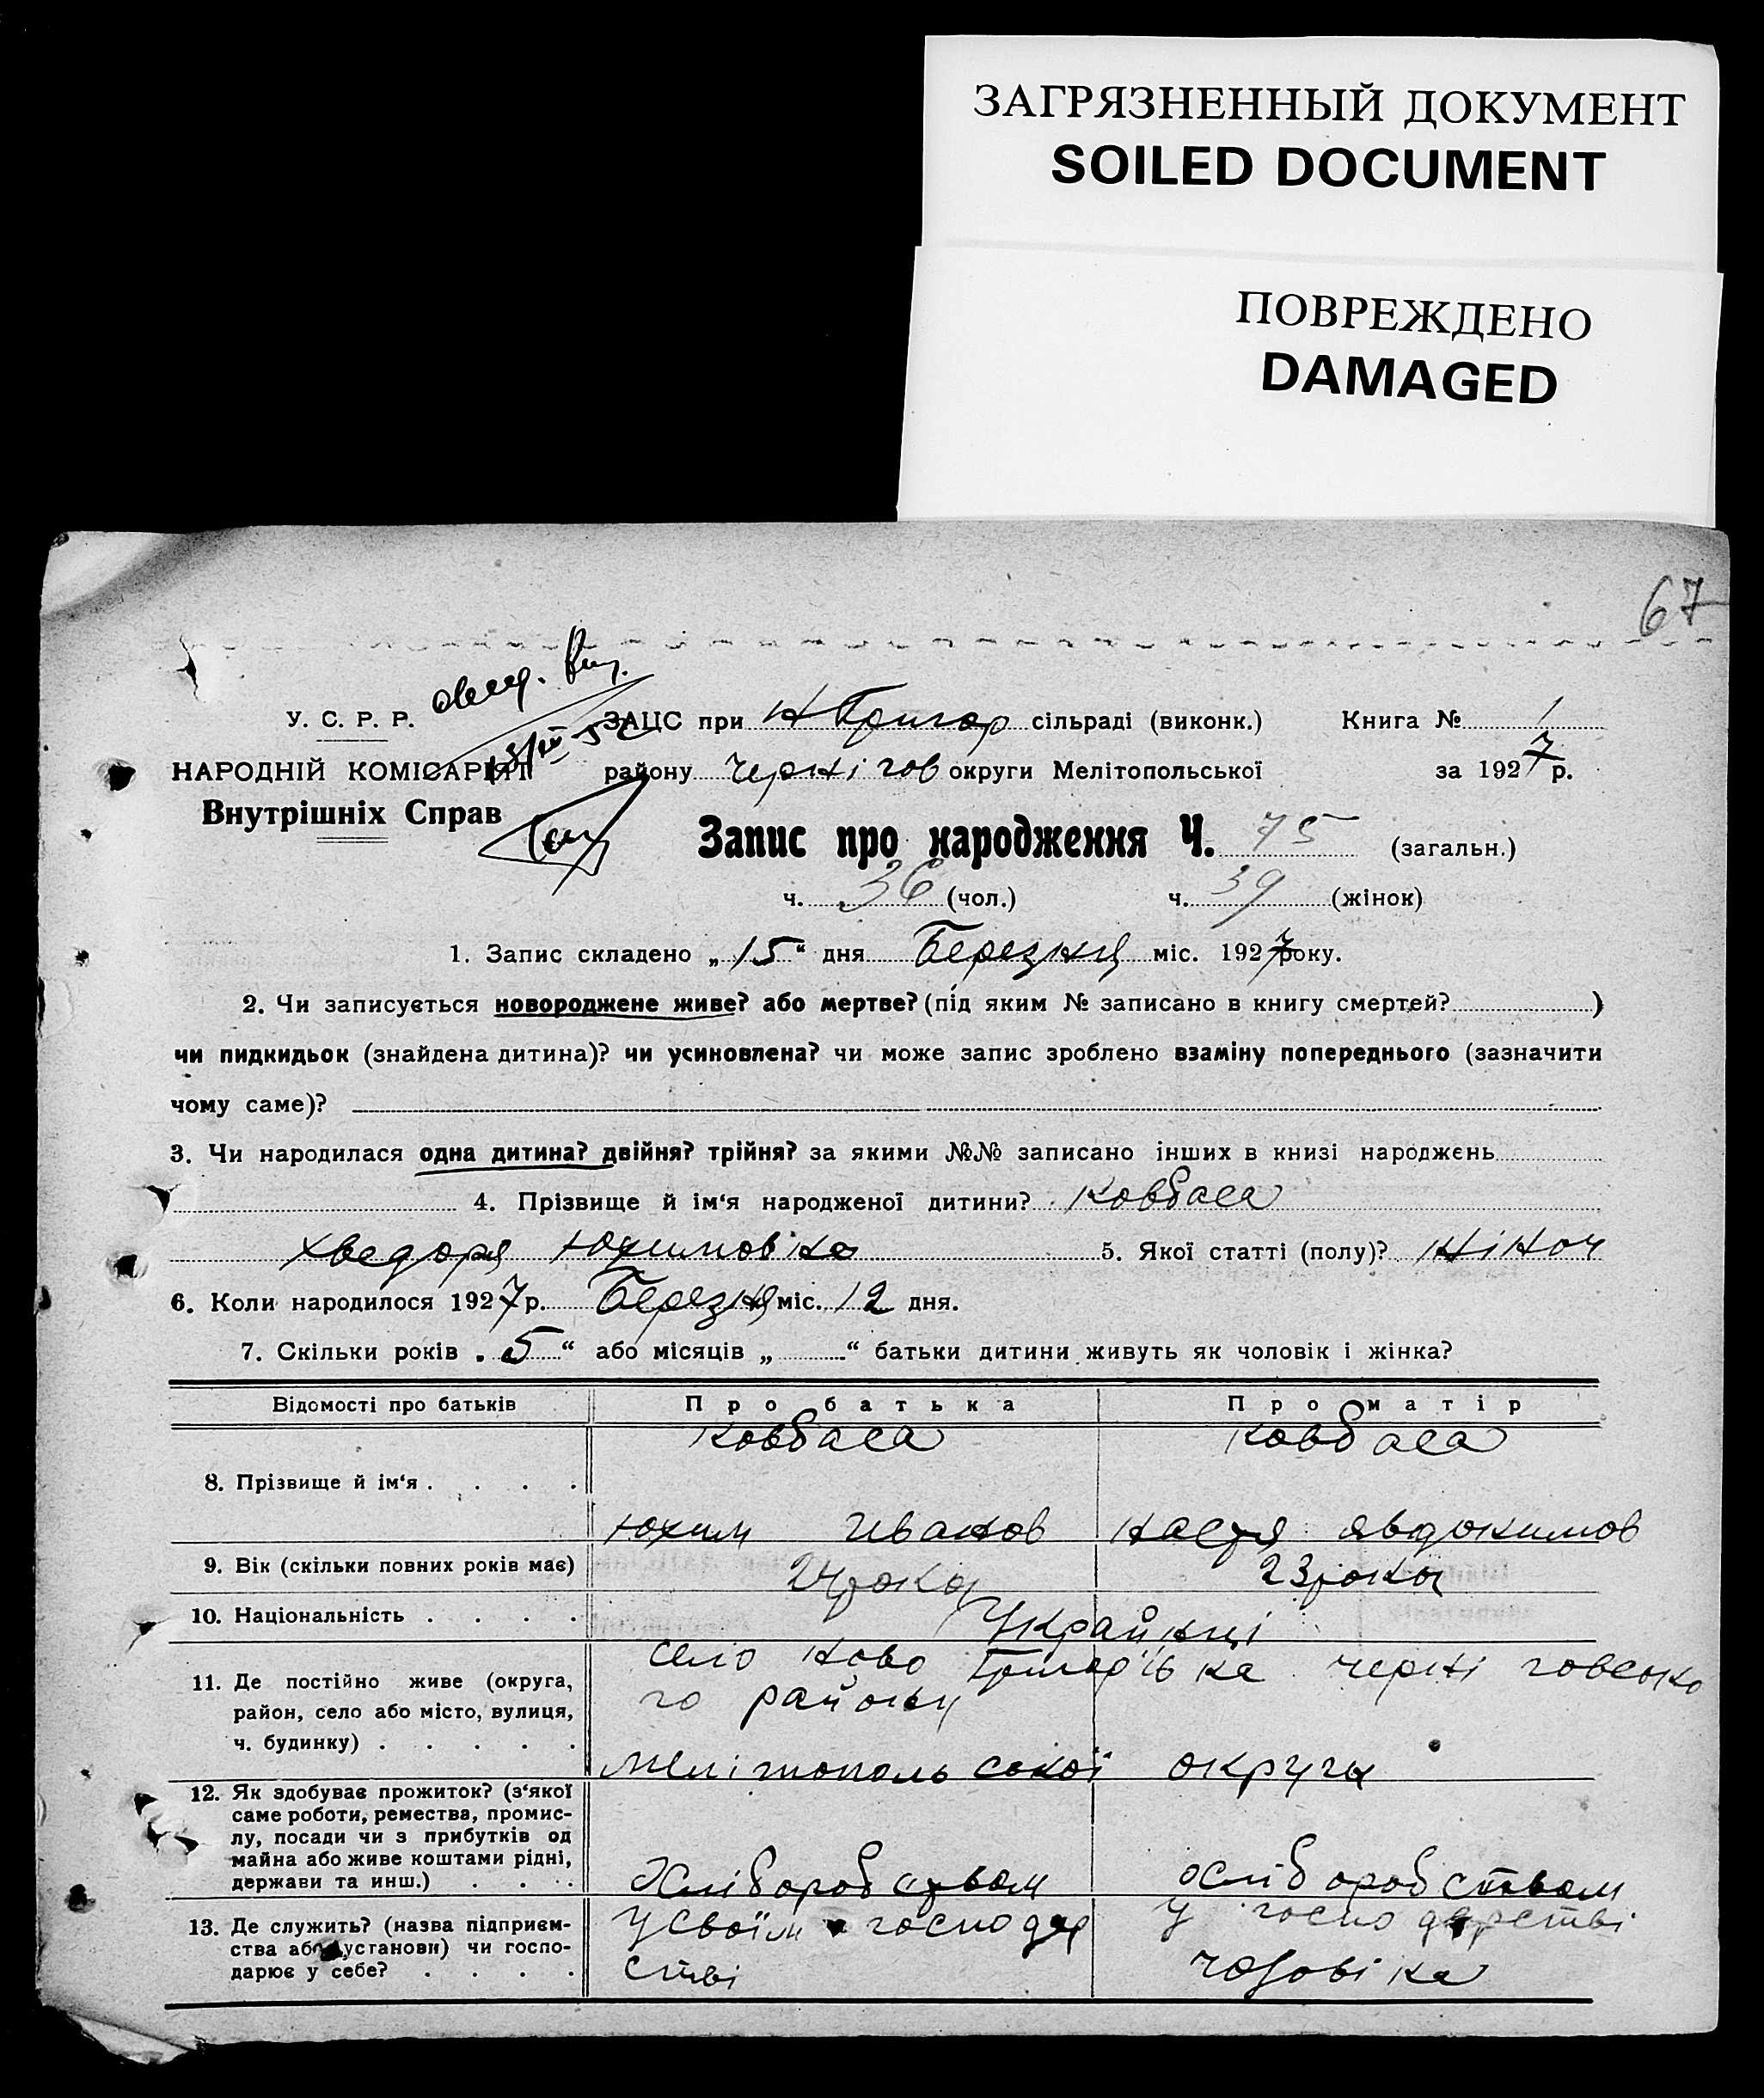 ЗАГРЯЗНЕННЫЙ ДОКУМЕНТ
SOILED DOCUMENT
ПОВРЕЖДЕНО
DAMAGED
67
У. С. Р. Р.
НАРОДНІЙ КОМІСАРІЯТ
Внутрішніх Справ
ЗАЦС при Н Григор сільраді (виконк.) Книга № 1
району Черні гов округи Мелітопольської за 1927 р.
Запис про народження Ч. 75 (загальн.)
ч. 36 (чол.) ч. 39 (жінок)
1. Запис складено „15“ дня Березня міс. 1927 року.
2. Чи записується новороджене живе? або мертве? (під яким № записано в книгу смертей? )
чи пидкидьок (знайдена дитина)? чи усиновлена? чи може запис зроблено взаміну попереднього (зазначити
чому саме)?
3. Чи народилася одна дитина? двійня? трійня? за якими №№ записано інших в книзі народжень
4. Прізвище й ім‘я народженої дитини? Ковбаса
Хведоря Юхимовіка 5. Якої статті (полу)? жіноч
6. Коли народилося 1927 р. Березня міс. 12 дня.
7. Скільки років „5“ або місяців „ “ батьки дитини живуть як чоловік і жінка?
Відомості про батьків Про батька Про матір
Ковбаса Ковбаса
8. Прізвище й ім‘я . . . .
Юхим Иванов Настя Явдокимов
9. Вік (скільки повних років має) 24 роки 23 роки
10. Національність . . . . Українці
11. Де постійно живе (округа, село Ново Григор'івка Черні говсько
район, село або місто, вулиця, го району
ч. будинку) . . . . . Мелітополь сокої округи
12. Як здобуває прожиток? (з‘якої
саме роботи, ремества, промис-
лу, посади чи з прибутків од
майна або живе коштами рідні,
держави та инш.) . . . Хліборобством хліборобством
13. Де служить? (назва підприєм- у своїм господар у господарстві
ства або установи) чи госпо-
дарює у себе? . . . . стві чоловіка